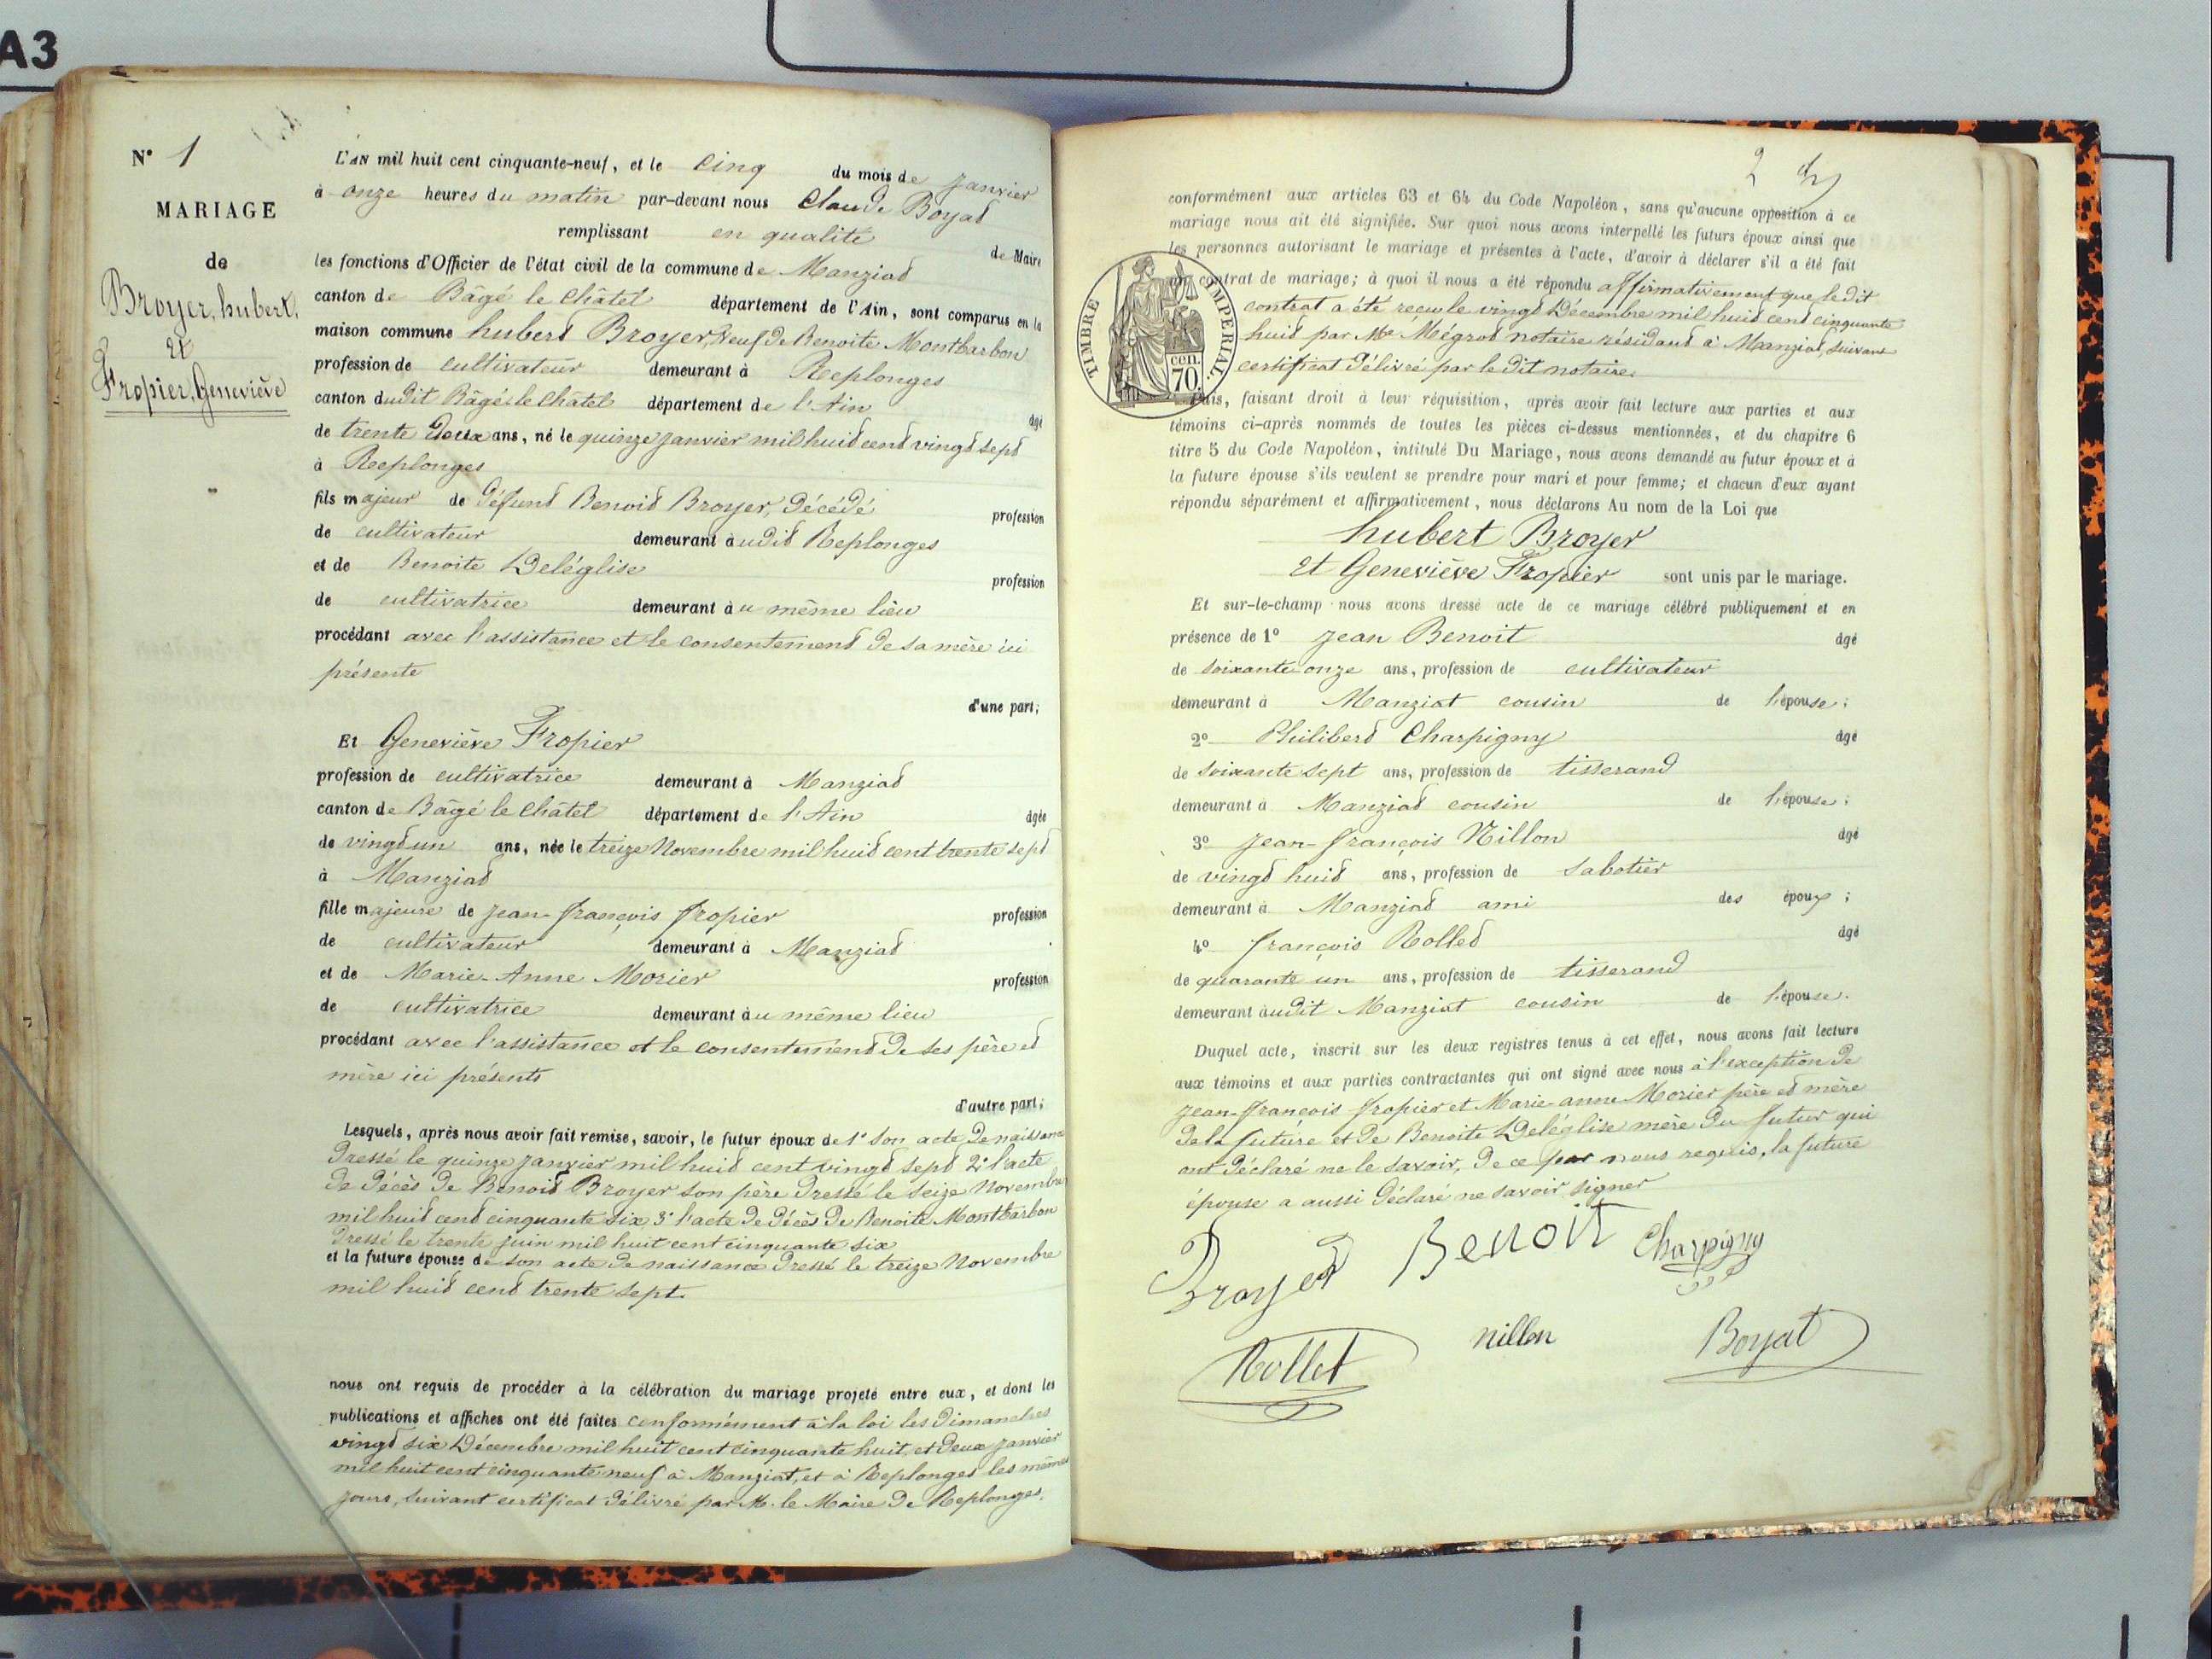 A3
N° 1
MARIAGE
de
Broyer, hubert,
Et
Fropier, Geneviève
L'AN mil huit cent cinquante-neuf, et le Cinq du mois de janvier
à onze heures du matin par-devant nous Claude Boyat
remplissant en qualité de Maire
les fonctions d'Officier de l'état civil de la commune de Manziat
canton de Bâgé le Châtel département de l'Ain, sont comparus en la
maison commune hubert Broyer, Veuf de Benoite Montbarbon
profession de cultivateur demeurant à Replonges
canton dudit Bâgé le Châtel département de l'Ain âgé
de trente deux ans, né le quinze janvier mil huit cent vingt sept
à Replonges
fils majeur de défunt Benoit Broyer, décédé profession
de cultivateur demeurant audit Replonges
et de Benoite Deléglise profession
de cultivatrice demeurant au même lieu
procédant avec l'assistance et le consentement de sa mère ici
présente
d'une part;
Et Geneviève Fropier
profession de cultivatrice demeurant à Manziat
canton de Bâgé le Châtel département de l'Ain âgée
de vingt un ans, née le treize Novembre mil huit cent trente sept
à Manziat
fille majeure de jean-françois fropier profession
de cultivateur demeurant à Manziat
et de Marie-Anne Morier profession
de cultivatrice demeurant au même lieu
procédant avec l'assistance et le consentement de ses père et
mère ici présents
d'autre part;
Lesquels, après nous avoir fait remise, savoir, le futur époux de 1° son acte de naissance
dressé le quinze janvier mil huit cent vingt sept 2° l'acte
de décès de Benoit Broyer son père dressé le seize Novembre
mil huit cent cinquante six 3° l'acte de décès de Benoite Montbarbon
dressé le trente juin mil huit cent cinquante six
et la future épouse de son acte de naissance dressé le treize Novembre
mil huit cent trente sept.
nous ont requis de procéder à la célébration du mariage projeté entre eux, et dont les
publications et affiches ont été faites conformément à la loi les dimanches
vingt six Décembre mil huit cent cinquante huit, et deux janvier
mil huit cent cinquante neuf à Manziat, et à Replonges les mêmes
jours, suivant certificat délivré par M. le Maire de Replonges.
2
conformément aux articles 63 et 64 du Code Napoléon, sans qu'aucune opposition à ce
mariage nous ait été signifiée. Sur quoi nous avons interpellé les futurs époux ainsi que
les personnes autorisant le mariage et présentes à l'acte, d'avoir à déclarer s'il a été fait
contrat de mariage; à quoi il nous a été répondu affirmativement que le dit
contrat a été reçu le vingt Décembre mil huit cent cinquante
huit par Me Mégrot notaire résidant à Manziat, suivant
certificat délivré par le dit notaire.
TIMBRE IMPERIAL.
cen.
70.
Puis, faisant droit à leur réquisition, après avoir fait lecture aux parties et aux
témoins ci-après nommés de toutes les pièces ci-dessus mentionnées, et du chapitre 6
titre 5 du Code Napoléon, intitulé Du Mariage, nous avons demandé au futur époux et à
la future épouse s'ils veulent se prendre pour mari et pour femme; et chacun d'eux ayant
répondu séparément et affirmativement, nous déclarons Au nom de la Loi que
hubert Broyer
Et Geneviève Fropier sont unis par le mariage.
Et sur-le-champ nous avons dressé acte de ce mariage célébré publiquement et en
présence de 1° jean Benoit âgé
de soixante onze ans, profession de cultivateur
demeurant à Manziat cousin de l'épouse;
2° Philibert Charpigny âgé
de soixante sept ans, profession de tisserand
demeurant à Manziat cousin de l'épouse;
3° jean-françois Nillon âgé
de vingt huit ans, profession de sabotier
demeurant à Manziat ami des époux;
4° françois Rollet âgé
de quarante un ans, profession de tisserand
demeurant audit Manziat cousin de l'épouse.
Duquel acte, inscrit sur les deux registres tenus à cet effet, nous avons fait lecture
aux témoins et aux parties contractantes qui ont signé avec nous à l'exception de
jean-françois fropier et Marie-anne Morier père et mère
de la future et de Benoite Deléglise mère du futur qui
ont déclaré ne le savoir, de ce par nous requis, la future
épouse a aussi déclaré ne savoir signer
Broyer Benoit Charpigny
Rollet nillon Boyat